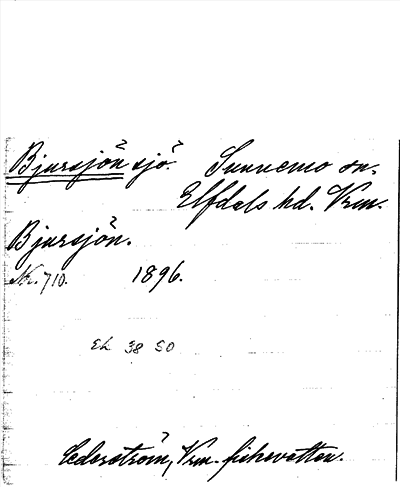 Bjursjön sjö. Sunnemo sn.
Elfdals hd. Vrm.
Bjursjön.
Nr. 710. 1896.
Ek 38 50
Cederström, Vrm. fiskevatten.